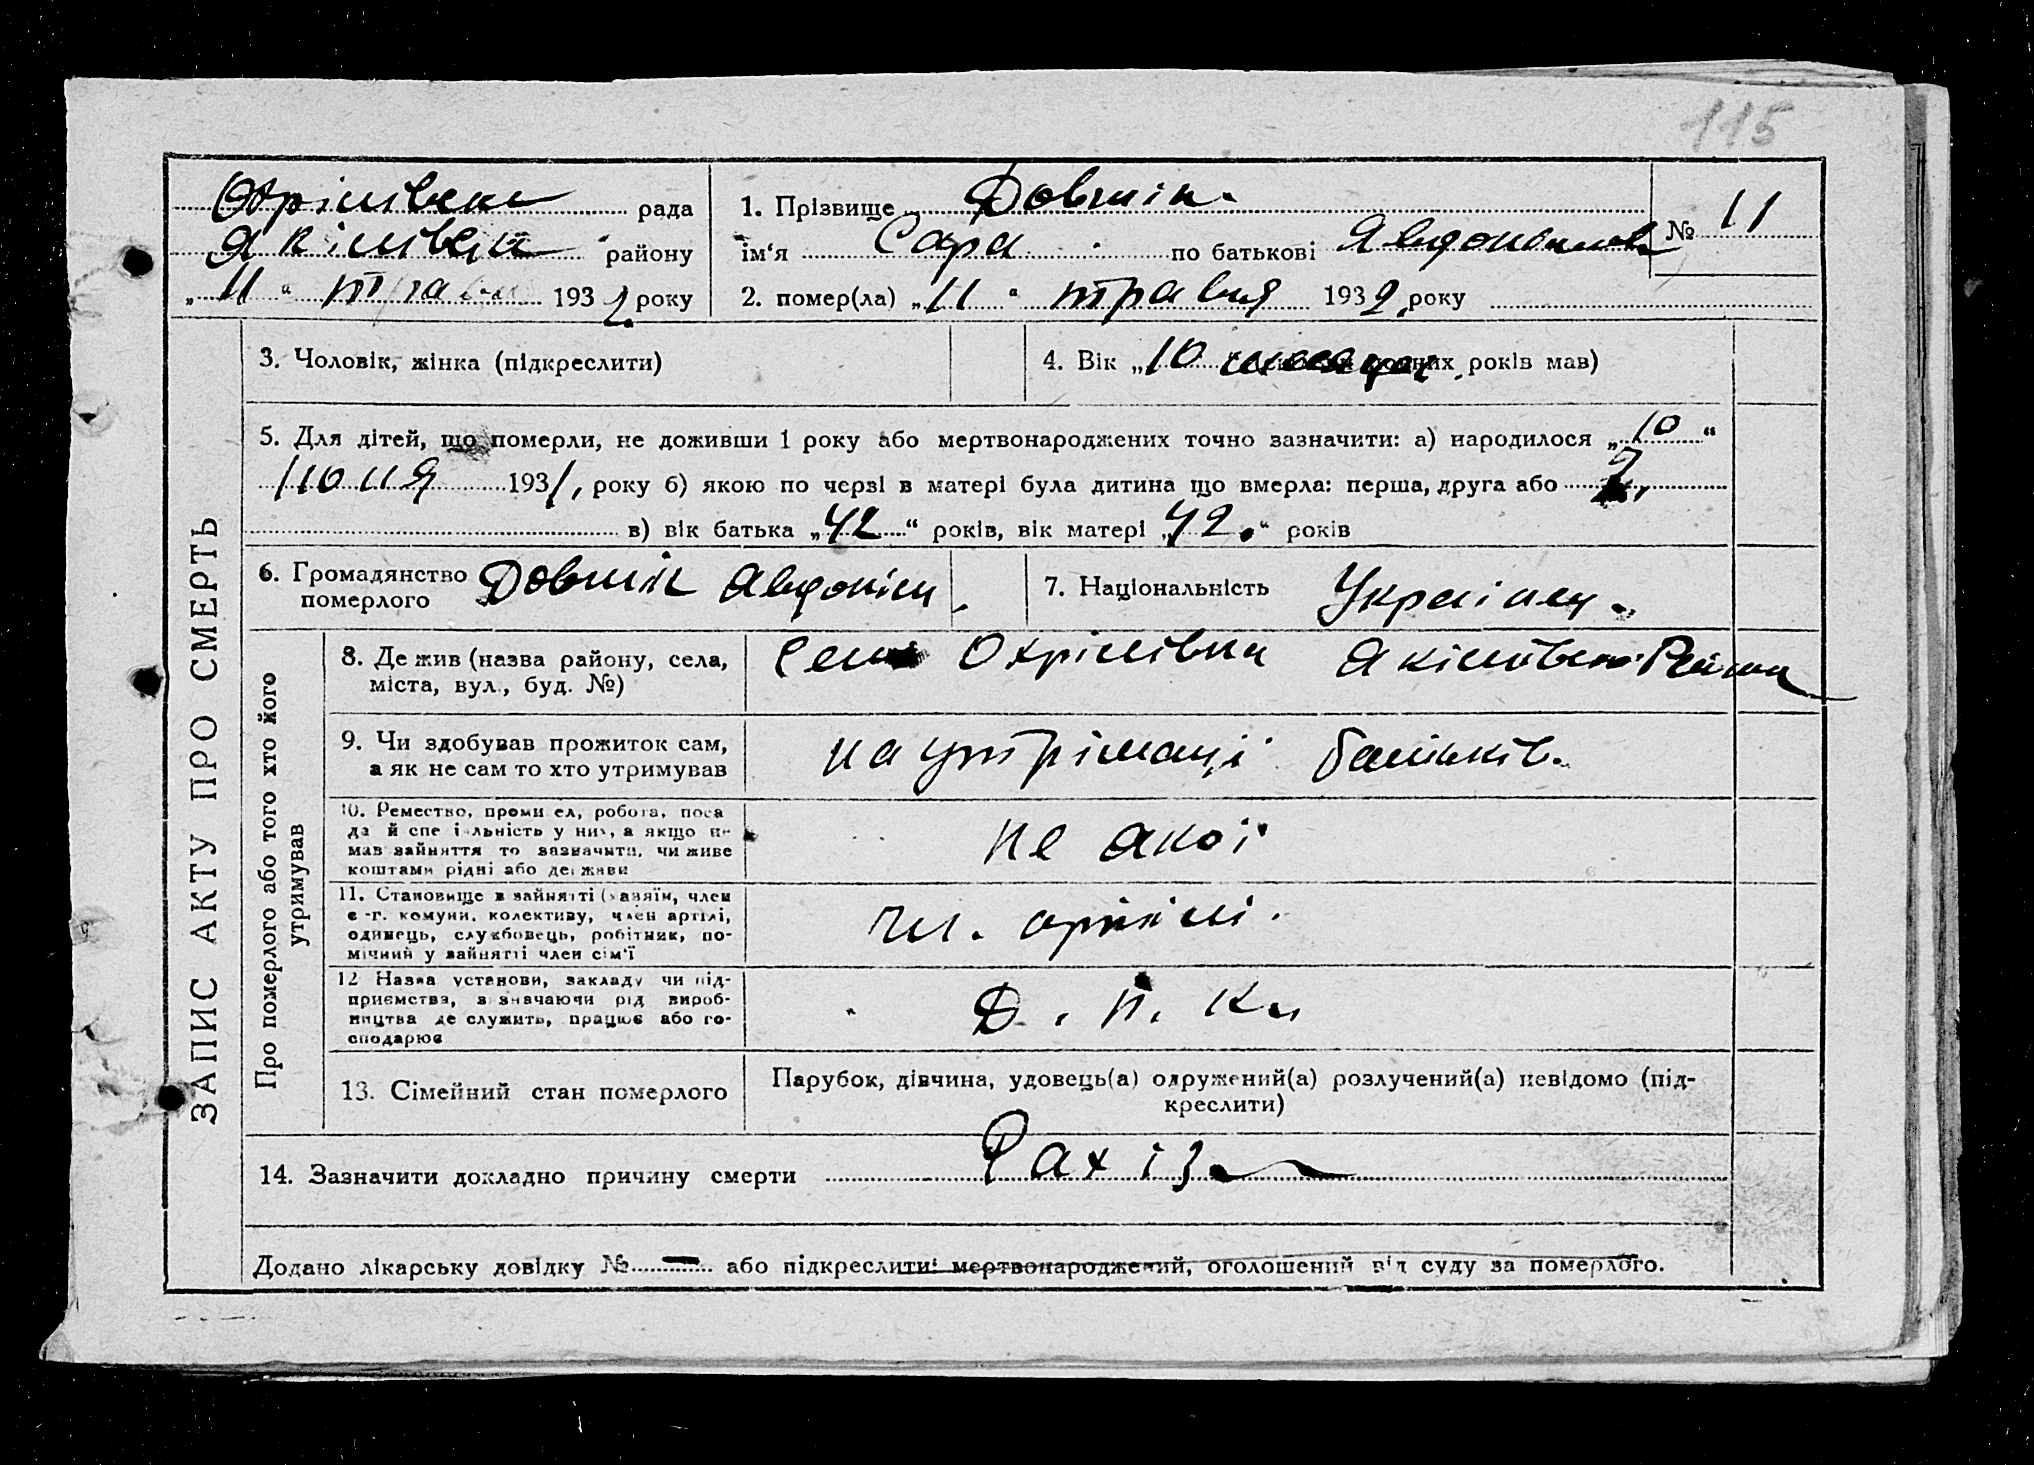 115
Охрімівська рада
Якімівськ району
„11“ травня 1932 року
1. Прізвище Довгшік.
ім‘я Сара по батькові Явдокимовна
№ 11
2. помер(ла) „11“ травня 1932, року
3. Чоловік, жінка (підкреслити)
4. Вік „10 місяців повних років мав)
5. Для дітей, що померли, не доживши 1 року або мертвонароджених точно зазначити: а) народилося „10“
Июня 1931, року б) якою по черзі в матері була дитина що вмерла: перша, друга або 7.
в) вік батька „42“ років, вік матері „42.“ років
6. Громадянство
померлого
7. Національність Україн
8. Де жив (назва району, села,
міста, вул., буд. №)
Село Охрімівка Якимівськ. Району
9. Чи здобував прожиток сам,
а як не сам то хто утримував
на утріманці батьків.
10. Ремество, промисел, робота, поса
да й спеціяльність у них, а якщо не
мав зайняття то зазначити, чи живе
коштами рідні або держави
не якої
11. Становище в зайнятті (хазяїн, член
с.-г. комуни, колективу, член артілі,
одинець, службовець, робітник, по-
мічний у зайнятті член сім‘ї
чл. артілі.
12 Назва установи, закладу чи під-
приємства, зазначаючи рід вироб-
ництва де служить, працює або го-
сподарює
13. Сімейний стан померлого
Парубок, дівчина, удовець(а) одружений(а) розлучений(а) невідомо (під-
креслити)
14. Зазначити докладно причину смерти Рахіз
Додано лікарську довідку № — або підкреслити: мертвонароджений, оголошений від суду за померлого.
ЗАПИС АКТУ ПРО СМЕРТЬ
Про померлого або того хто його
утримував